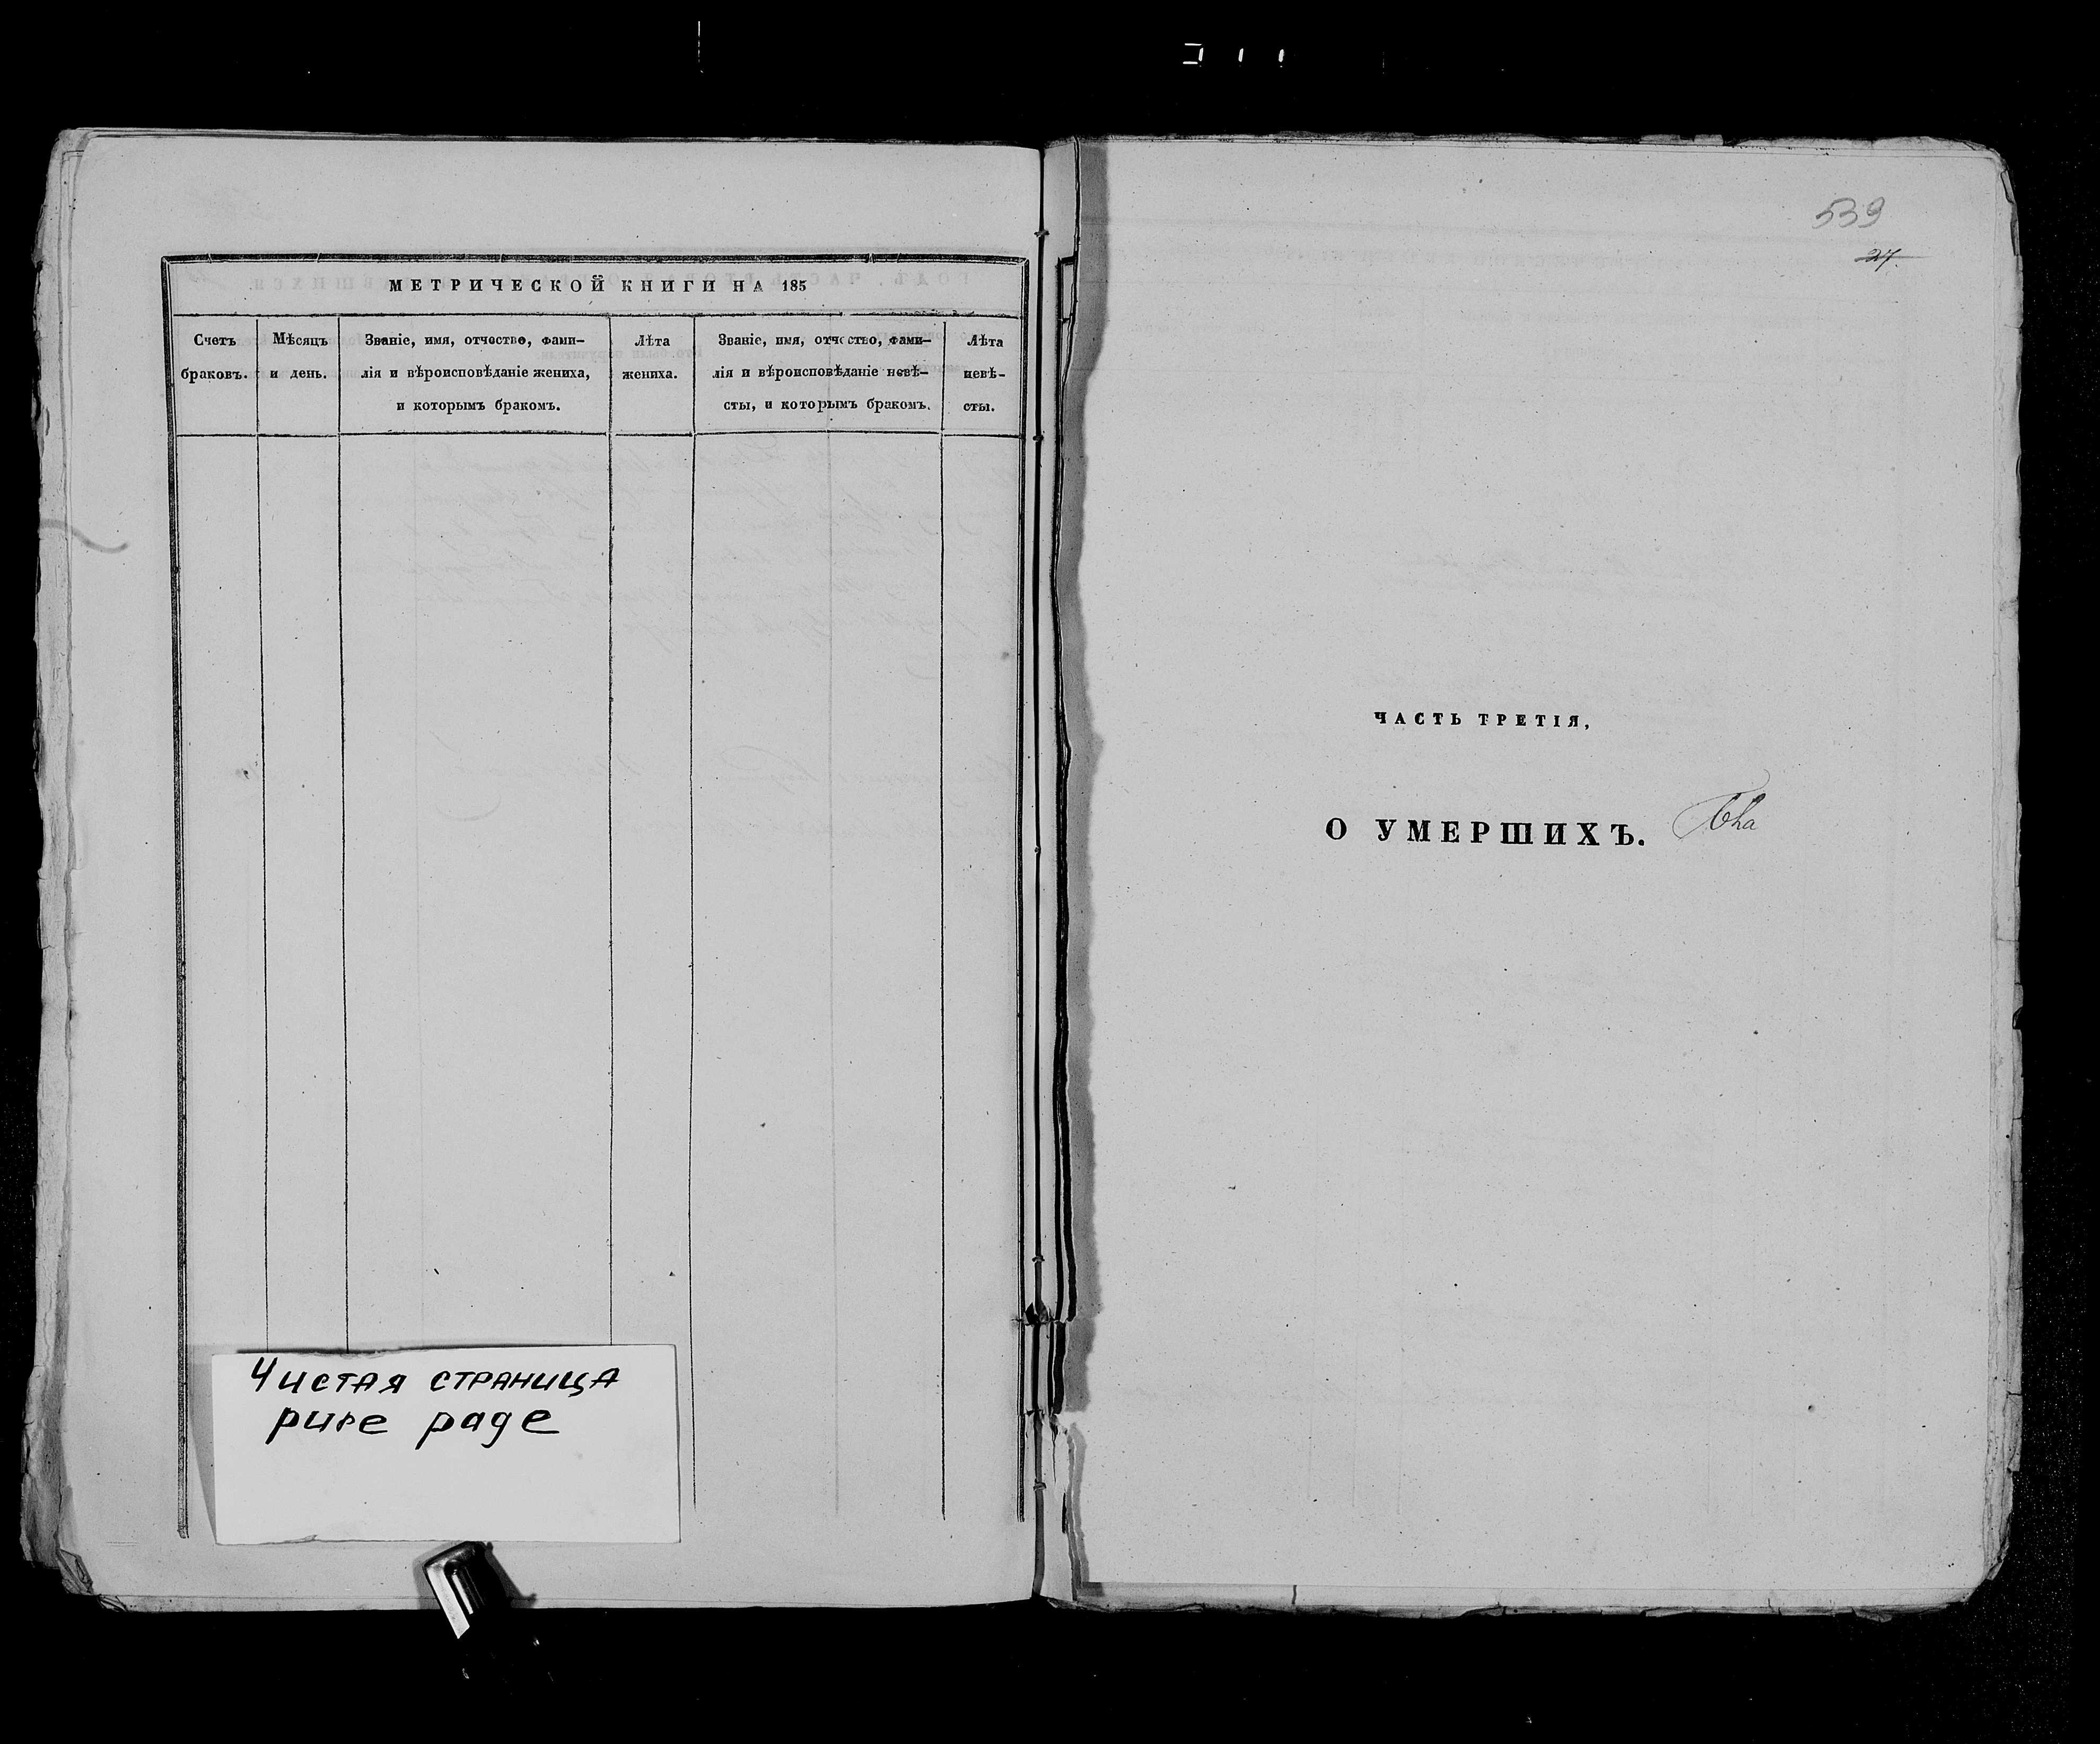 МЕТРИЧЕСКОЙ КНИГИ НА 185
Счетъ браковъ.
Мѣсяцъ и день.
Званіе, имя, отчество, фами-
лія и вѣроисповѣданіе жениха,
и которымъ бракомъ.
Лѣта
жениха.
Званіе, имя, отчество, фами-
лія и вѣроисповѣданіе невѣ-
сты, и которымъ бракомъ.
Лѣта
невѣ-
сты.
Чистая страница
pure page
539
27.
ЧАСТЬ ТРЕТІЯ,
О УМЕРШИХЪ.